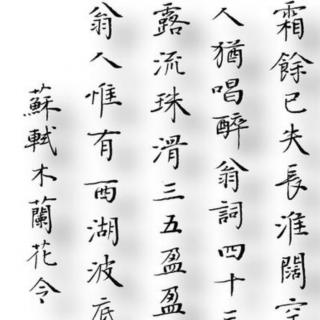 霜餘已失長淮闊空
人猶唱醉翁詞四十三
露流珠滑三五盈盈
翁人惟有西湖波底
蘇軾木蘭花令